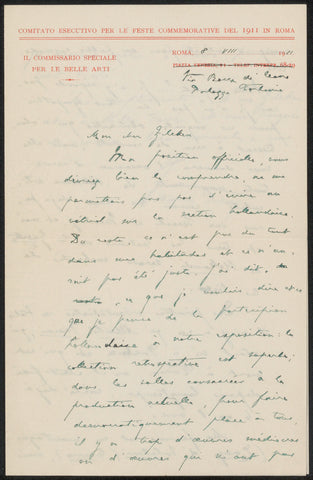 COMITATO ESECUTIVO PER LE FESTE COMMEMORATIVE DEL 1911 IN ROMA
IL COMMISSARIO SPECIALE
PER LE BELLE ARTI
ROMA, 8 VIII 1911
PIAZZA VENEZIA, 11 - TELEF. INTERPR.
Via Bocca di Leone
Palazzo
Mon cher Zilcken
Ma position officielle, vous
devriez bien le comprendre, ne me
permettais pas pas d'écrire un
sur la section hollandaise.
Du reste, ce n'est pas du tout
dans mes habitudes et ce n'au
rait pas été juste. J'ai dit,
ce que je voulais dire et ce
que je pense de la participation
hollandaise à notre exposition: la
collection retrospective est superbe;
dans les salles consacrées à la
production actuelle, pour faire
democratiquement place à tous,
il y a trop d'œuvres médiocres
ou d'œuvres qui n'ont pas